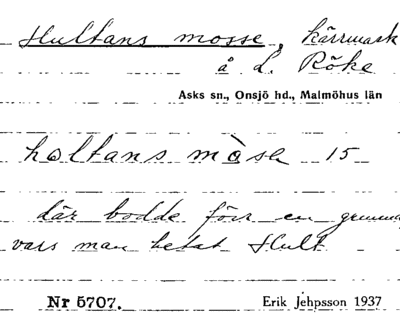 Hultans mosse, kärrmark
å L. Röke
Asks sn., Onsjö hd., Malmöhus län
hɷltans mòse 15
där bodde förr en
vars man hetat Hult
Nr 5707. Erik Jehpsson 1937